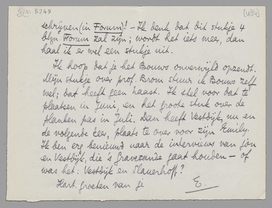 schrijven (in Forum)! – Ik denk dat dit stukje 4
blzn Forum zal zijn; wordt het iets meer, dan
haal ik er wel een stukje uit.
Ik hoop dat je het Bouws onverwijld opzendt.
Mijn stukje over prof. Brom stuur ik Bouws zelf
wel; dat heeft geen haast. Ik stel voor dat te
plaatsen in Juni, en het groote stuk over de
planken pas in Juli. Dan heeft Vestdijk, nu en
de volgende keer, plaats te over voor zijn Emily.
Ik ben erg benieuwd naar de interviews van Jan
en Vestdijk, die 's-Gravesande gaat houden – of
was het: Vestdijk en Slauerhoff?
Hart. groeten van je
E.